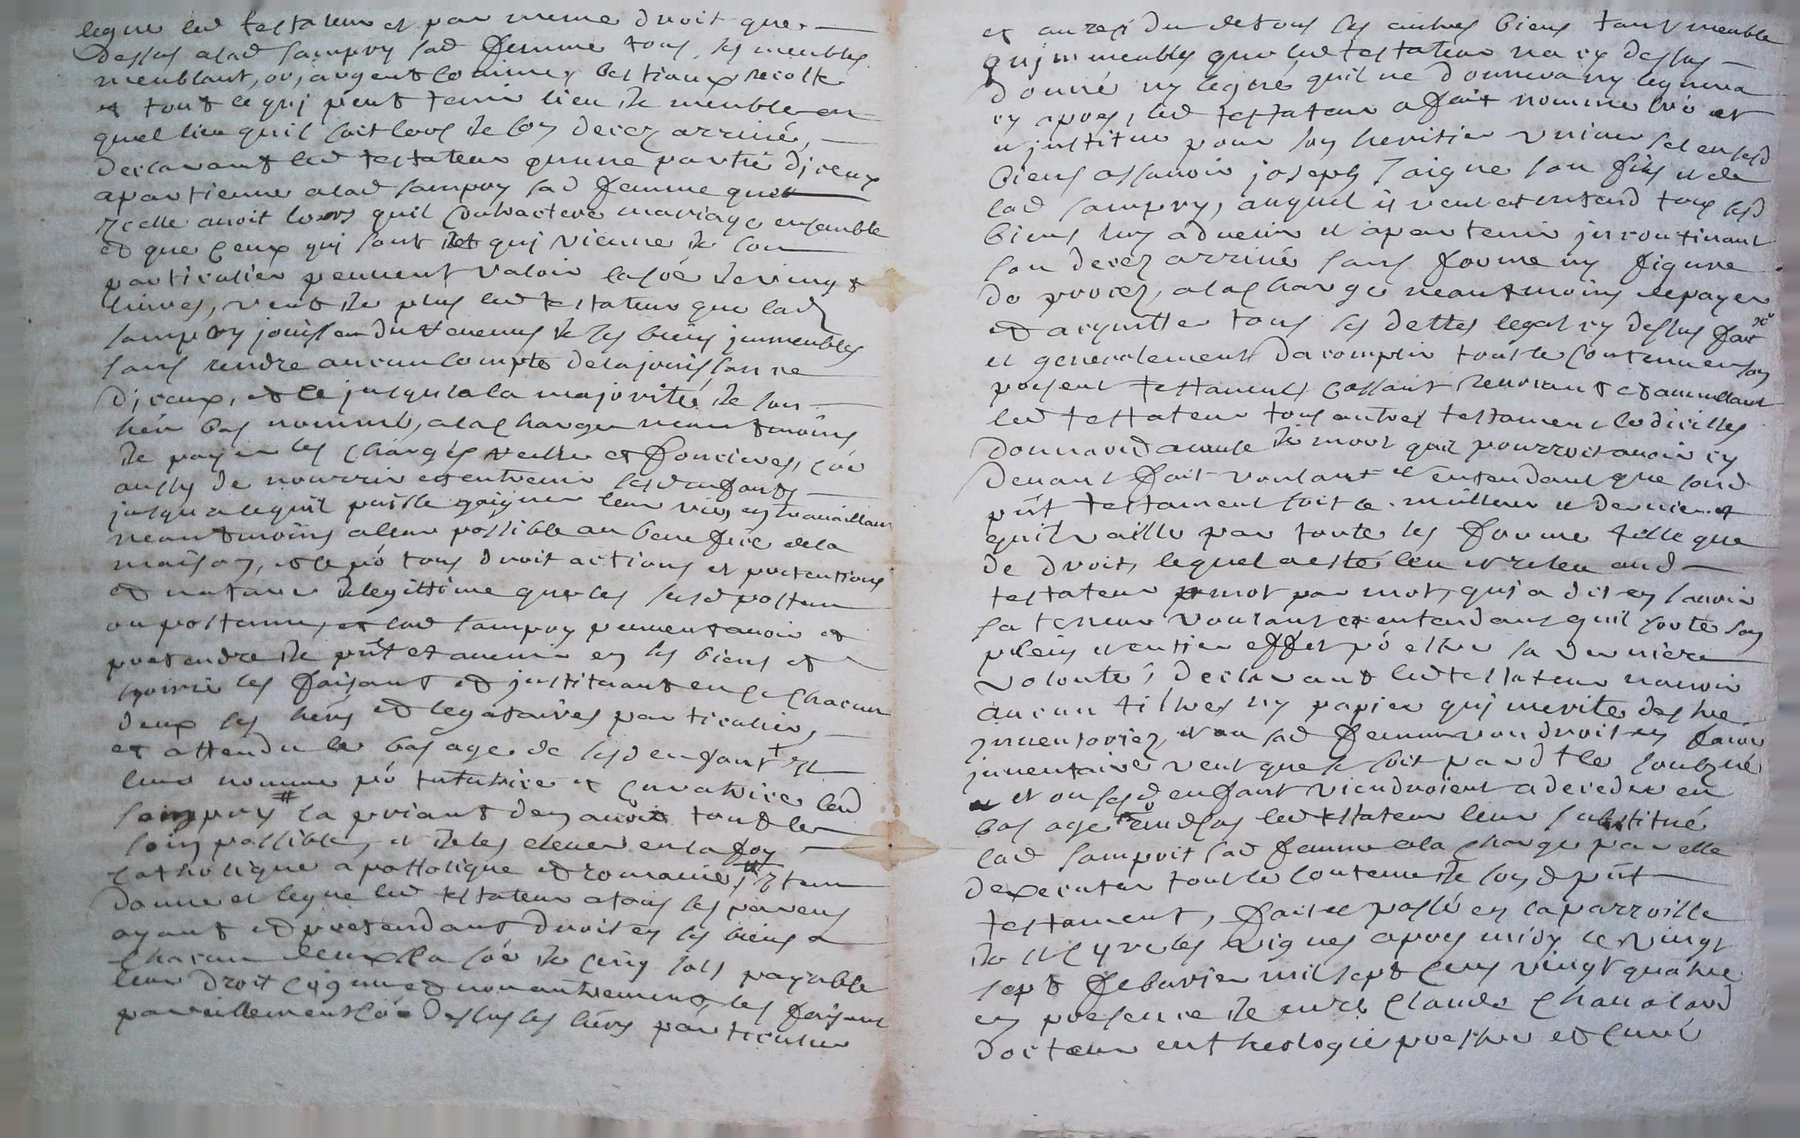 legue led testateur et par meme droit que
dessus a lad sampoy sad femme tous ses meubles
meublant, or, argent comimes bestiaux recolte
et tout ce quj peut tenir lieu de meuble en
quel lieu quil soit lors de son decez arrivé
declarant led testateur quune partie djceux
apartienne a lad sampoy sad femme que
Icelle avoit lors quil contractere mariage ensemble
et que ceux quj sont qui vienne de son
particulier peuvent valoir la soe de vingt
livres, veut de plus led testateur que lad
sampoy jouisse du revenus de ses biens jmmeubles
sans rendre aucun compte de la jouissance
djceux, et ce jusqu a la majorite de son
heir bas nommé, a la charge neantmoins
de payer les charges reelle et foncieres, coe
aussy de nourrir et entrenir sesd enfants
jusqu a ce quil puisse gaigner leur vie en travaillant
neantmoins a leur possible au benefice de la
maison, et ce po tous droit actions et pretentions
et nature de legittime que les susd posteme
ou posteme, et lad sampoy peuvent avoir et
pretendre de pnt et avenir en ses biens et
hoirie les faisant et jnstituant en ce chacun
deux ses heirs et legataires particulier,
et attendu le bas age de sesd enfant + Il
leur nomme po tutrice et curatrice lad
sampoy # la priant den avoir tout le
soing possible, et de les elever en la foy
catholique apostolique et romaine, # Item
donne et legue led testateur a tous ses parens
ayant et pretendant droit en ses biens a
chacun deux la soe de cinq sols payable
leur droit cognu et non autrement, les faisant
pareillement coe dessus ses heirs particulier
et au residu de tous ses autres biens tant meuble
qu jmmeubles que led testateur na cy dessus
donné ny legué quil ne donnera ny leguera
cy apres, led testateur a fait nommé cré et
institue pour son heritier universel en sesd
biens assavoir joseph Taigne son fils et de
lad sampoy, auquel il veut et entend tous sesd
biens luy advenir et apartenir jncontinant
son decez arrivé sans forme ny figure
de procez, a la charge neantmoins de payer
et acquitter tous ses dettes legat cy dessus fait
et generalement dacomplir tout le contenu en son
present testament cassant revocant et annullant
led testateur tous autres testament codicilles
donnaon a cause de mort quil pourroit avoir cy
devant fait voulant et entendant que sond
pnt testament soit le meilleur et dernier et
quil vaille par toute les forme telle que
de droit, lequel a esté leu et releu aud
testateur mot par mot, quj a dit en savoir
sa teneur voulant et entendant quil sorte son
plein et entier effet po estre sa derniere
volonté, declarant led testateur navoir
aucun tiltres ny papier quj merite destre
jnventoriez, et ou sad femme voudroit en faire
jnventaire veut que se soit pard le soubzné
et ou sesd enfant viendroient a deceder en
bas age aud cas led testateur leur substitue
lad sampoit sad femme a la charge par elle
dexecuter tout le contenu de sond pnt
testament, fait et passé en la parroisse
de St Cyr les vignes apres midy le vingt
sept febvrier mil sept cens vingt quatre
en presence de mre Claude Chavaland
docteur en theologie prestre et curé